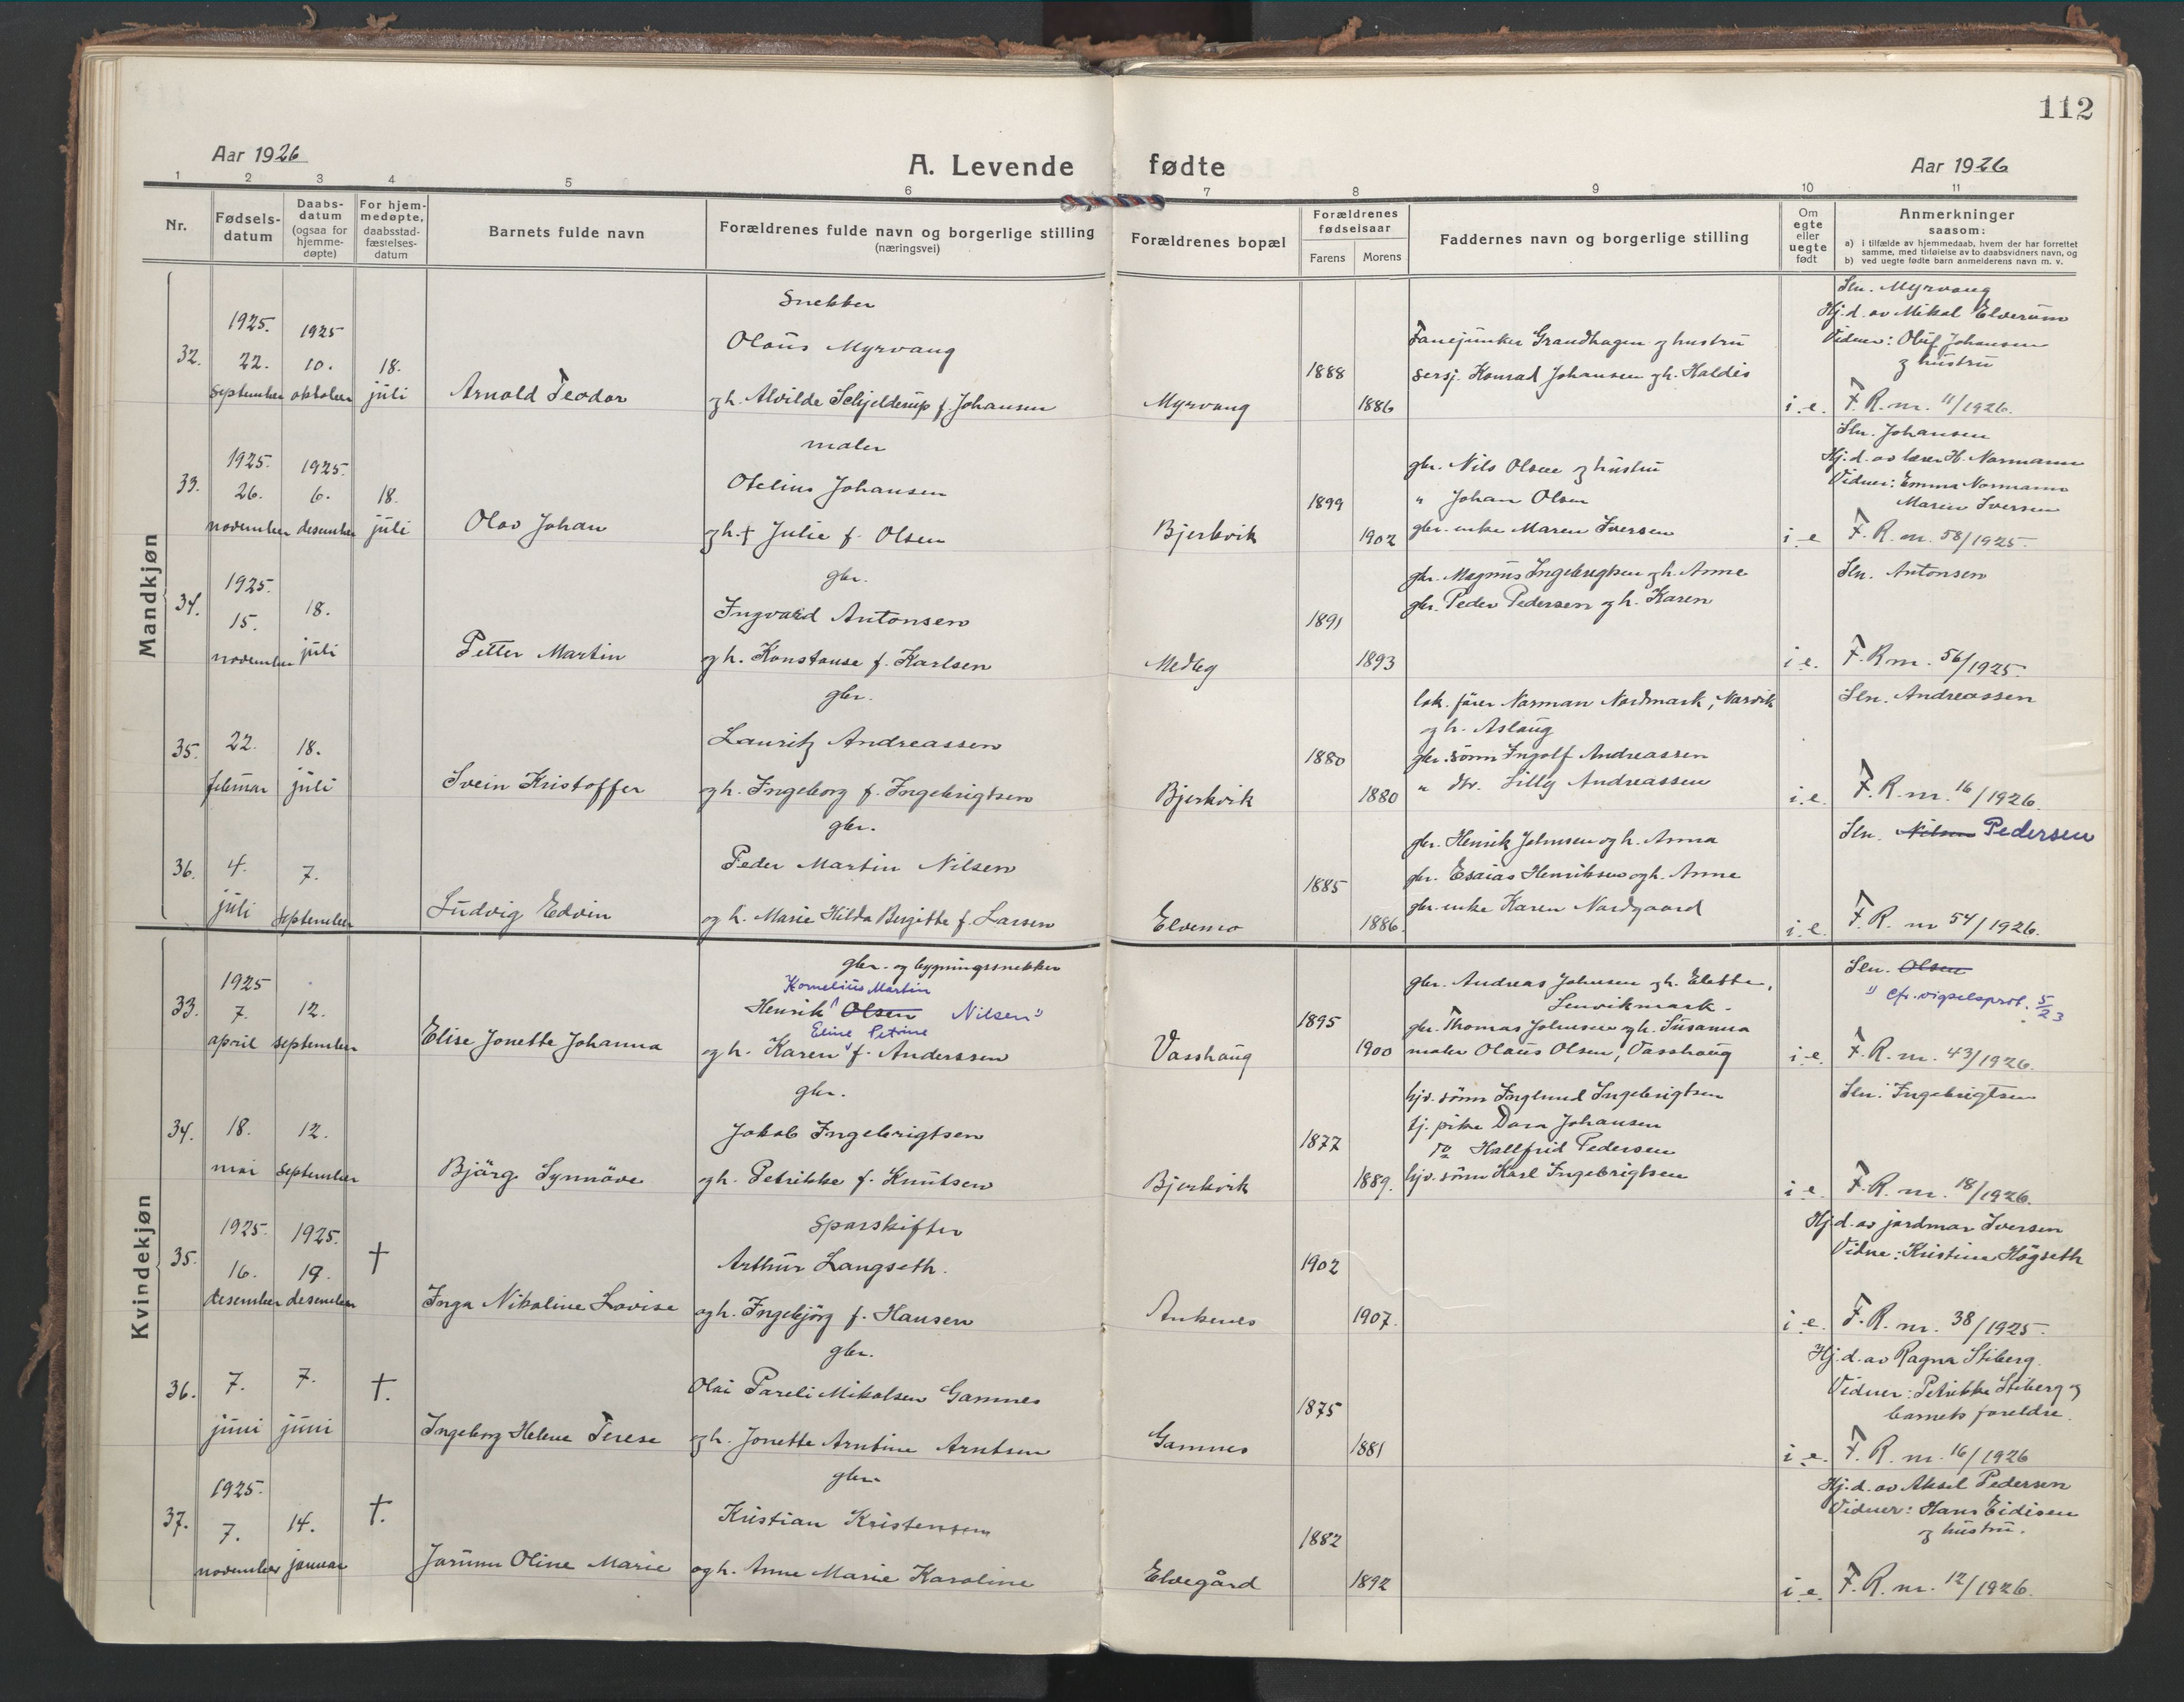 112
Aar 1926
A. Levende fødte
Aar 1926
1 2 3 4 5 6 7 8 9 10 11
Nr.
Fødsels-
datum
Daabs-
datum
(ogsaa for
hjemme-
døpte)
For hjem-
medøpte,
daabsstad-
fæstelses-
datum
Barnets fulde navn
Forældrenes fulde navn og borgerlige stilling
(næringsvei)
Forældrenes bopæl
Forældrenes
fødselsaar
Farens
Morens
Faddernes navn og borgerlige stilling
Om
egte
eller
uegte
født
Anmerkninger
saasom:
a) i tilfælde av hjemmedaab, hvem der har forrettet
samme, med tilføielse av to daabsvidners navn, og
b) ved uegte fødte barn anmelderens navn m. v.
Mandkjøn
32.
1925.
22.
september
1925
10.
oktober
18.
juli
Arnold Teodor
Snekker
Olaus Myrvang
og h. Alvilde Schjelderup f. Johansen
Myrvang
1888
1886
Fanejunker Grandhagen og hustru
Sersj. Konrad Johansen og h. Haldis
i.e.
Sln. Myrvang
Hj.d. av Mikal Elverum
Vidner: Oluf Johansen
og hustru
F. R. nr. 11/1926.
33.
1925.
26.
november
1925.
6.
desember
18.
juli
Olav Johan
maler
Otelius Johansen
og h. † Julie f. Olsen
Bjerkvik
1899
1902
gbr. Nils Olsen og hustru
" Johan Olsen
gbr. enke Maren Iversen
i.e
Sln. Johansen
Hj.d. av lærer H. Normann
Vidner: Emma Normann
Maren Iversen
F. R. nr. 58/1925.
34.
1925.
15.
november
18.
juli
Petter Martin
gbr.
Ingvard Antonsen
og h. Konstanse f. Karlsen
Medby
1891
1893
gbr. Magnus Ingebrigtsen og h. Anne
gbr. Peder Pedersen og h. Karen
i.e.
Sln. Antonsen
F. R. nr. 56/1925.
35.
22.
februar
18.
juli
Svein Kristoffer
gbr.
Lauritz Andreassen
og h. Ingeborg f. Ingebrigtsen
Bjerkvik
1880
1880
lok. fører Norman Nordmark, Narvik
og h. Aslaug
gbr. sønn Ingolf Andreassen
" dtr. Lilly Andreassen
i.e.
Sln. Andreassen
F. R. nr. 16/1926.
36.
4.
juli
7.
september
Ludvig Edvin
gbr.
Peder Martin Nilsen
og h. Marie Hilda Bergitte f. Larsen
Elvemo
1885
1886.
gbr. Henrik Johnsen og h. Anna
gbr. Esaias Henriksen og h. Anne
gbr. enke Karen Nordgaard
i.e.
Sln. Nilsen Pedersen
F. R. nr 54/1926.
Kvindekjøn
33.
1925
7.
april
12.
september
Elise Jonette Johanna
gbr. og bygningssnekker
Kornelius Martin
Henrik Olsen Nilsen 1)
Eline Petrine
og h. Karen f. Anderssen
Vasshaug
1895
1900
gbr. Andreas Johnsen og h. Elette,
Lenvikmark.
gbr. Thomas Johnsen og h. Susanna
maler Olaus Olsen, Vasshaug
i.e.
Sln. Olsen
1) Cfr. vigselsprot. 5/23
F. R. nr. 43/1926.
34.
18.
mai
12.
september
Bjørg Synnøve
gbr.
Jakob Ingebrigtsen
og h. Petrikke f. Knutsen
Bjerkvik
1877
1889.
hjv. sønn Inglund Ingebrigtsen
tj. pike Dora Johansen
do Hallfrid Pedersen
hjv. sønn Karl Ingebrigtsen
i.e.
Sln. Ingebrigtsen
F. R. nr. 18/1926.
35.
1925.
16.
desember
1925.
19.
desember
†
Inga Nikoline Lovise
Sporskifter
Arthur Langseth.
og h. Ingebjørg f. Hansen
Ankenes
1902
1907.
i.e.
Hj.d. av jordmor Iversen
Vidne: Kristine Høgseth
F. R. nr. 38/1925.
36.
7.
juni
7.
juni
†.
Ingeborg Helene Terese
gbr.
Olai Pareli Mikalsen Gamnes
og h. Jonette Arntine Arntsen
Gamnes
1875
1881
i.e.
Hj.d. av Ragna Stiberg.
Vidner: Petrikke Stiberg og
barnets foreldre.
F. R. nr. 16/1926
37.
1925.
7.
november
14.
januar
†.
Jorunn Oline Marie
gbr.
Kristian Kristensen
og h. Anne Marie Karoline
Elvegård
1882
1892
i.e.
Hj.d. av Aksel Pedersen
Vidner: Hans Eidisen
og hustru.
F. R. nr. 12/1926.